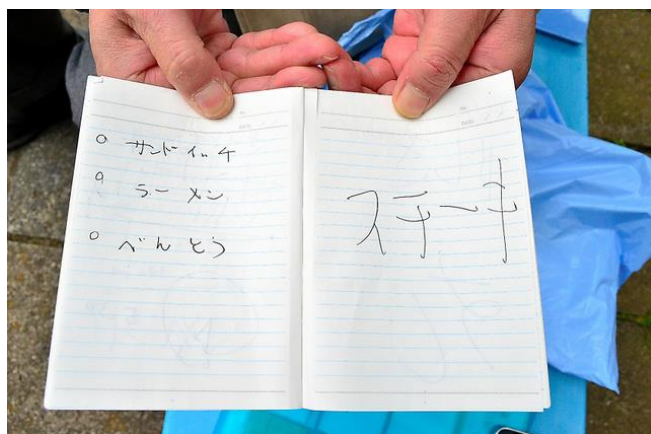 ○ サンドイッチ
○ ラーメン
○ べんとう
ステーキ